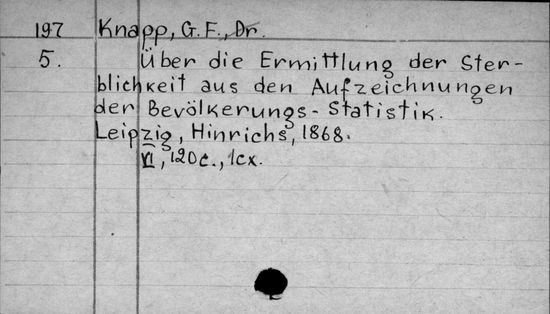 197 Knapp, G. F., Dr.
5. Über die Ermittlung der Ster-
blichkeit aus den Aufzeichnungen
der Bevölkerungs-Statistik.
Leipzig, Hinrichs, 1868.
VI, 120c., 1cx.